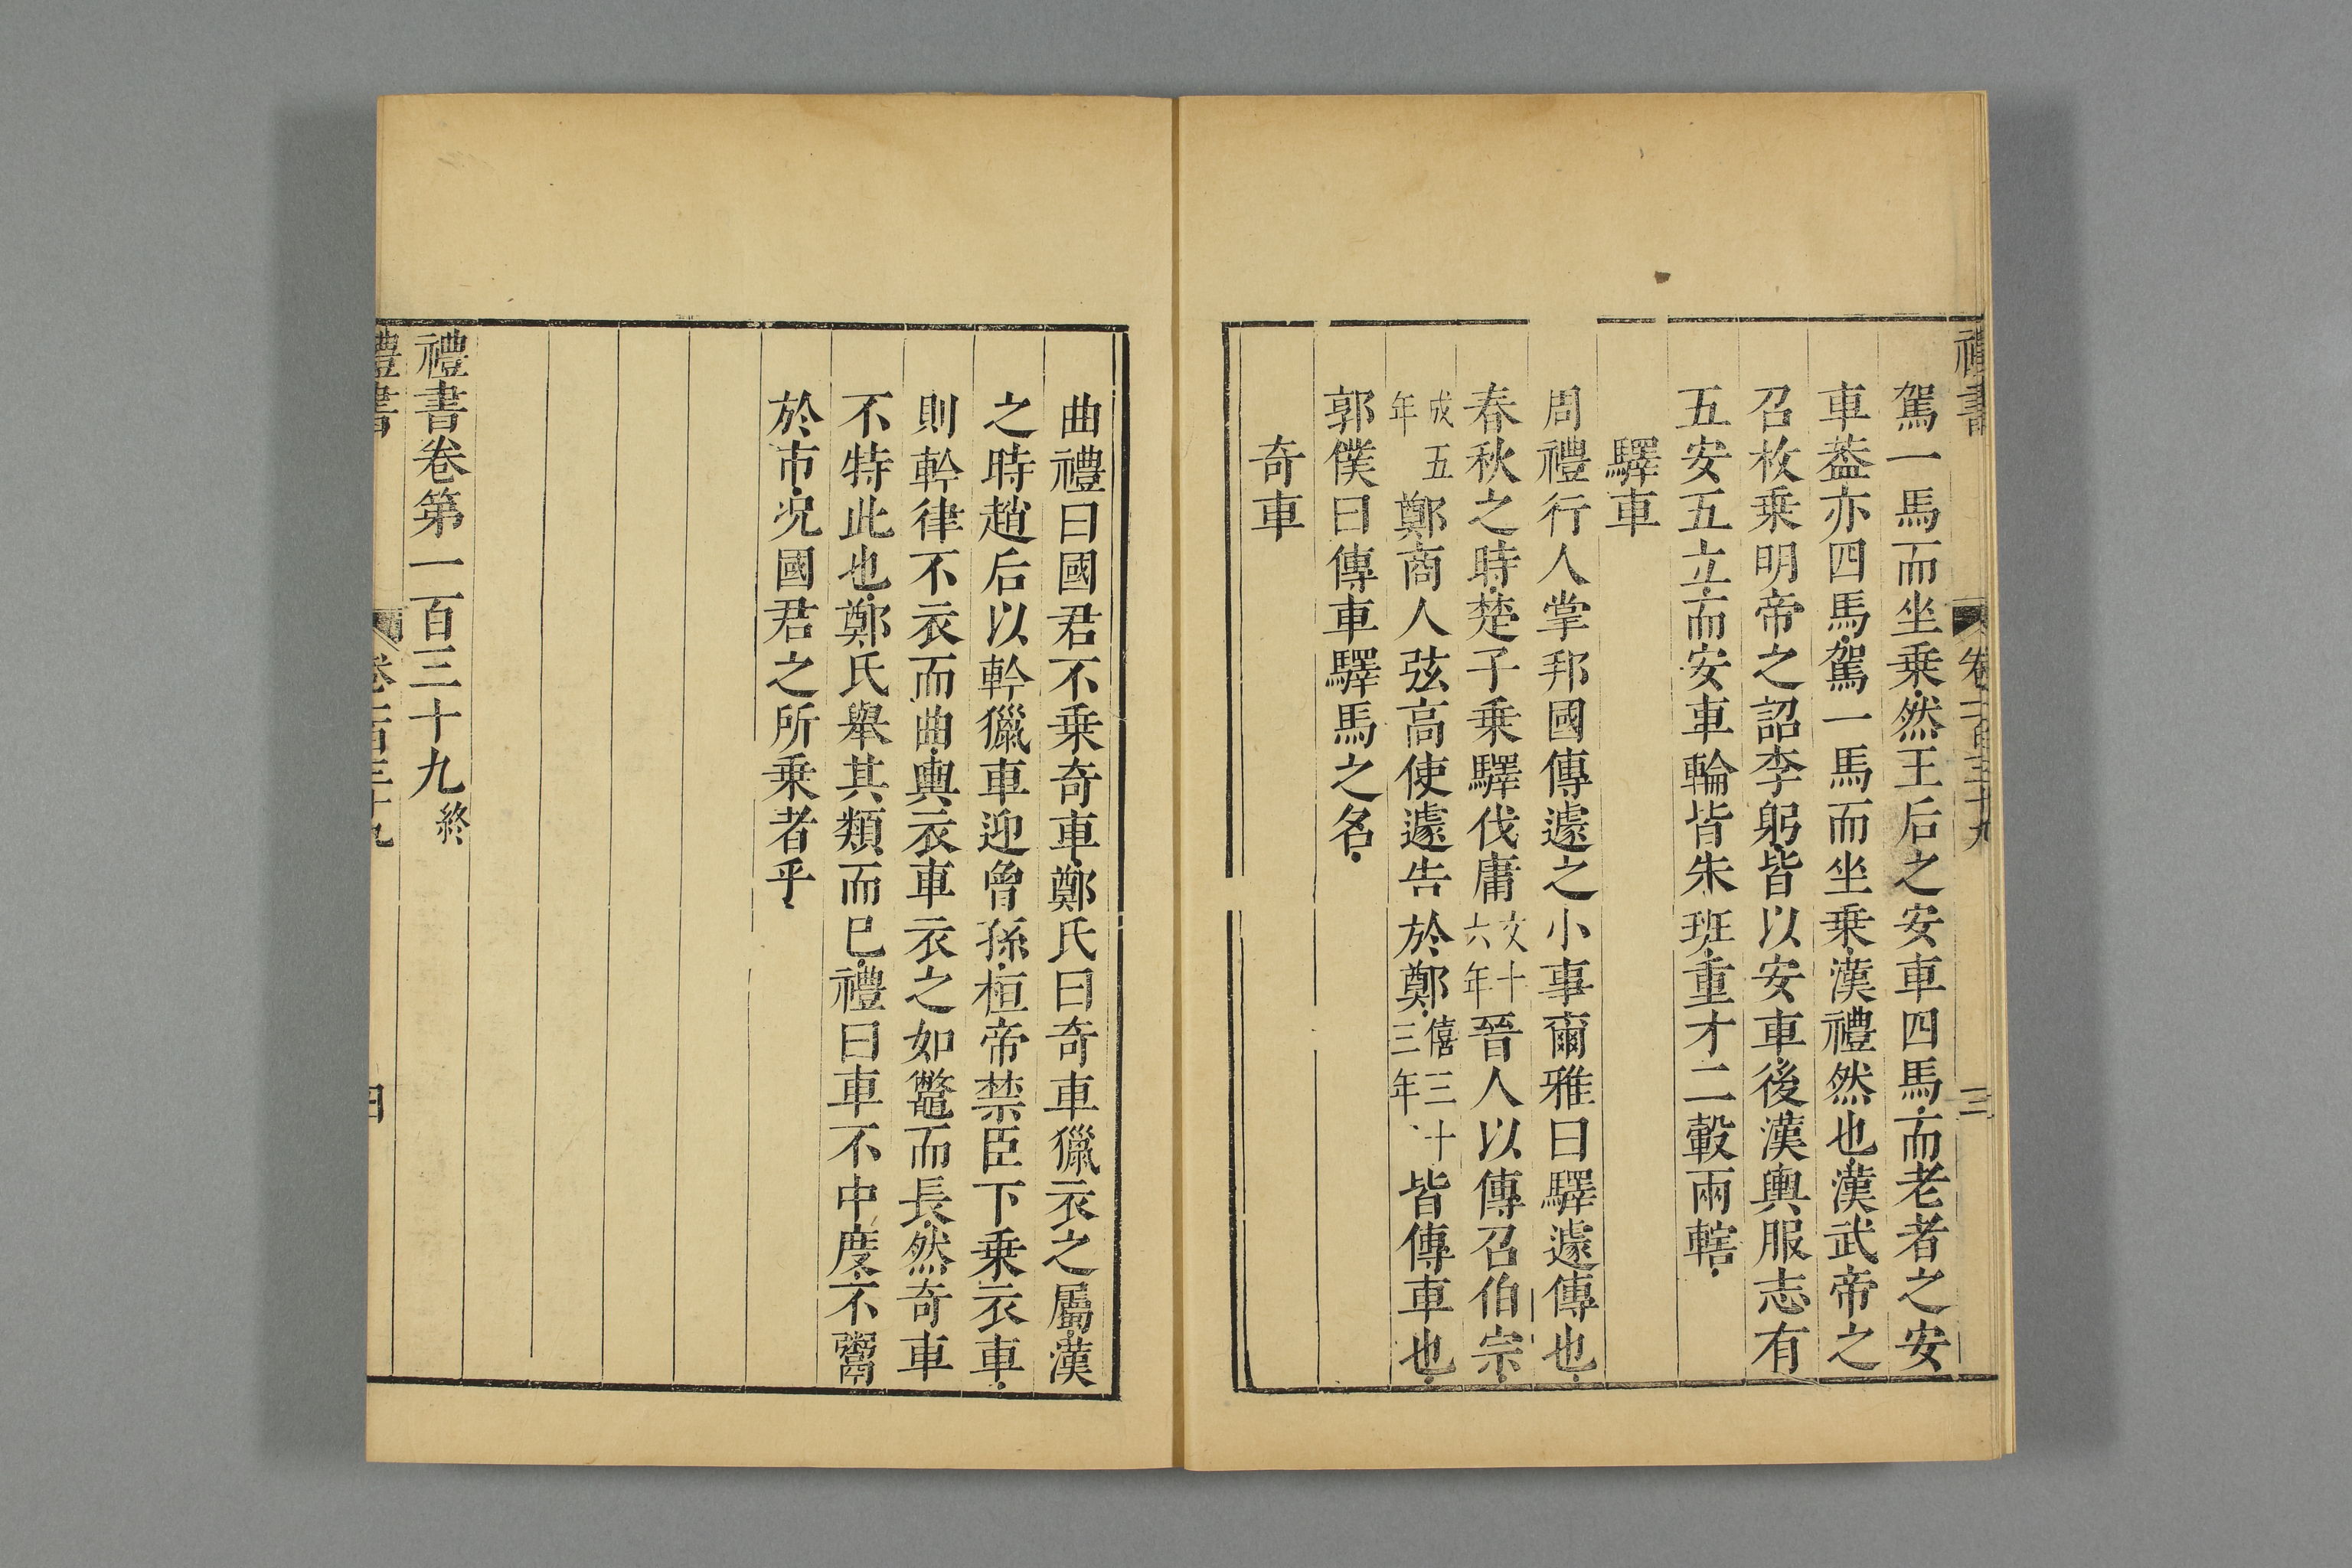 禮書 卷一百三十九 三
駕一馬而坐乗然王后之安車四馬而老者之安
車葢亦四馬駕一馬而坐乗漢禮然也漢武帝之
召枚乗明帝之詔李躬皆以安車後漢輿服志有
五安五立而安車輪皆朱班重才二轂兩轄
驛車
周禮行人掌邦國傳遽之小事爾雅曰驛遽傳也
春秋之時楚子乗驛伐庸文十六年晉人以傳召伯宗
成五年鄭商人弦高使遽告於鄭僖三十三年皆傳車也
郭僕曰傳車驛馬之名
奇車
曲禮曰國君不乗奇車鄭氏曰奇車獵衣之屬漢
之時趙后以軡獵車迎曾孫桓帝禁臣下乗衣車
則軡律不衣而曲輿衣車衣之如鼈而長然奇車
不特此也鄭氏舉其類而已禮曰車不中度不鬻
於市况國君之所乗者乎
禮書卷第一百三十九終
禮書 卷一百三十九 四